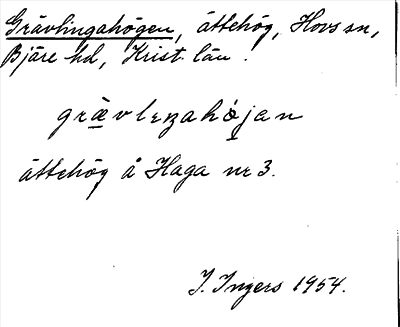 Grävlingahögen, ättehög, Hovs sn,
Bjäre hd, Krist. län.
grävlıŋahöjan
ättehög å Haga nr 3.
I. Ingers 1954.